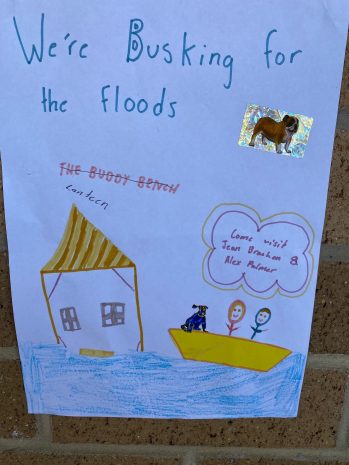 We're Busking for
the floods
THE BUDDY BENCH
Canteen
Come visit
Jean Brachan &
Alex Palmer